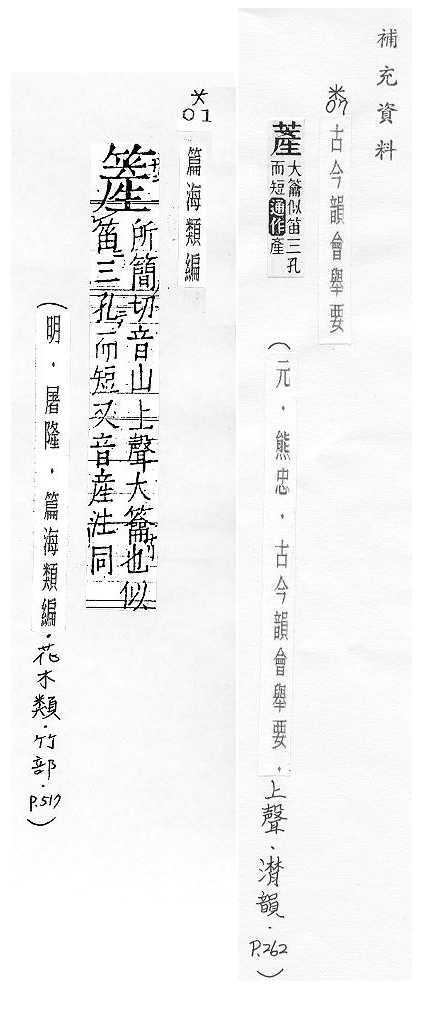 補充資料
07
古今韻會舉要
簅
大籥似笛三孔
而短通作產
(元．熊忠．古今韻會舉要．上聲．潸韻．P.262)
01
篇海類編
簅
所簡切音山上聲大籥也似
笛三孔而短又音產注同
(明．屠隆．篇海類編．花木類．竹部．P.517)